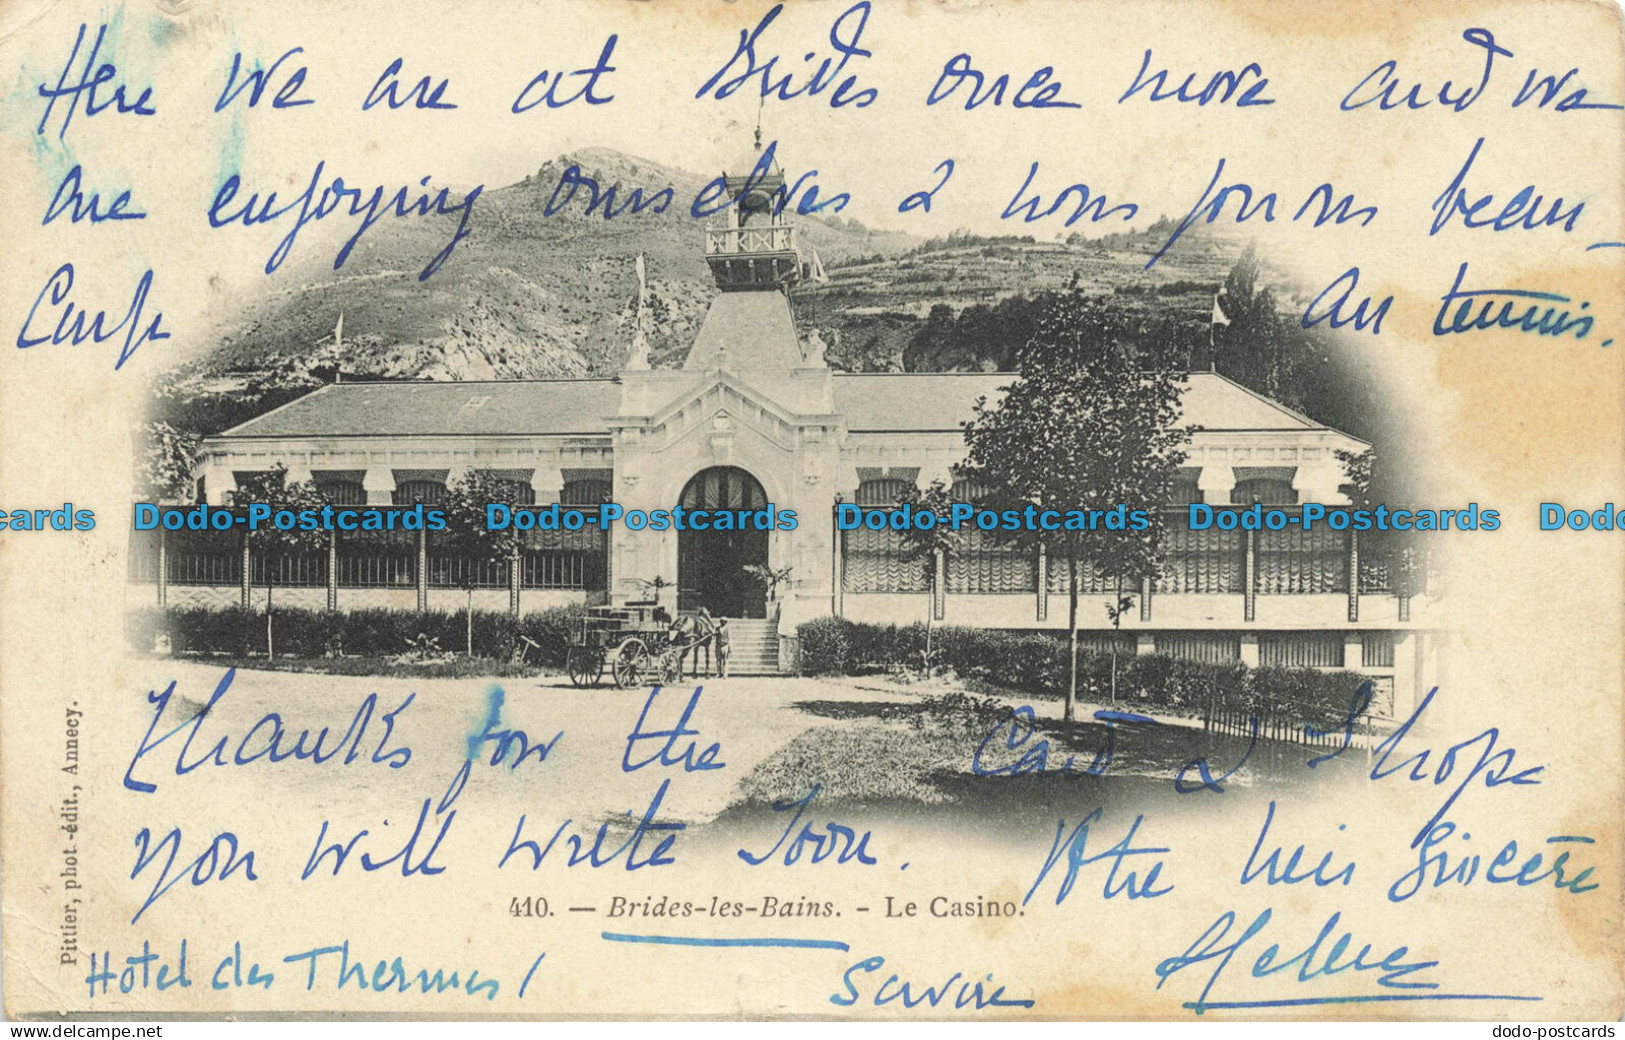 Here we are at Brides once more and we
are enjoying ourselves & nous jouons beau-
coup au tennis.
Dodo-Postcards Dodo-Postcards Dodo-Postcards Dodo-Postcards
Thanks for the card & I hope
you will write soon. Votre sincère
410. — Brides-les-Bains. - Le Casino.
Pittier, phot.-édit., Annecy.
Hôtel des Thermes / Savoie Hélène
dodo-postcards